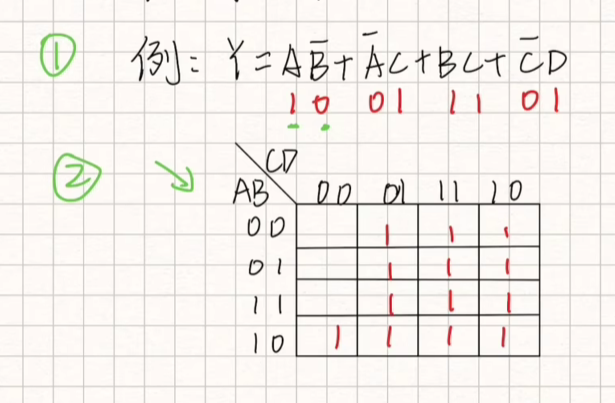 ① 例: Y = AB̅ + A̅C + BC + C̅D
10 01 11 01
② CD
AB 00 01 11 10
00 1 1 1
01 1 1 1
11 1 1 1
10 1 1 1 1